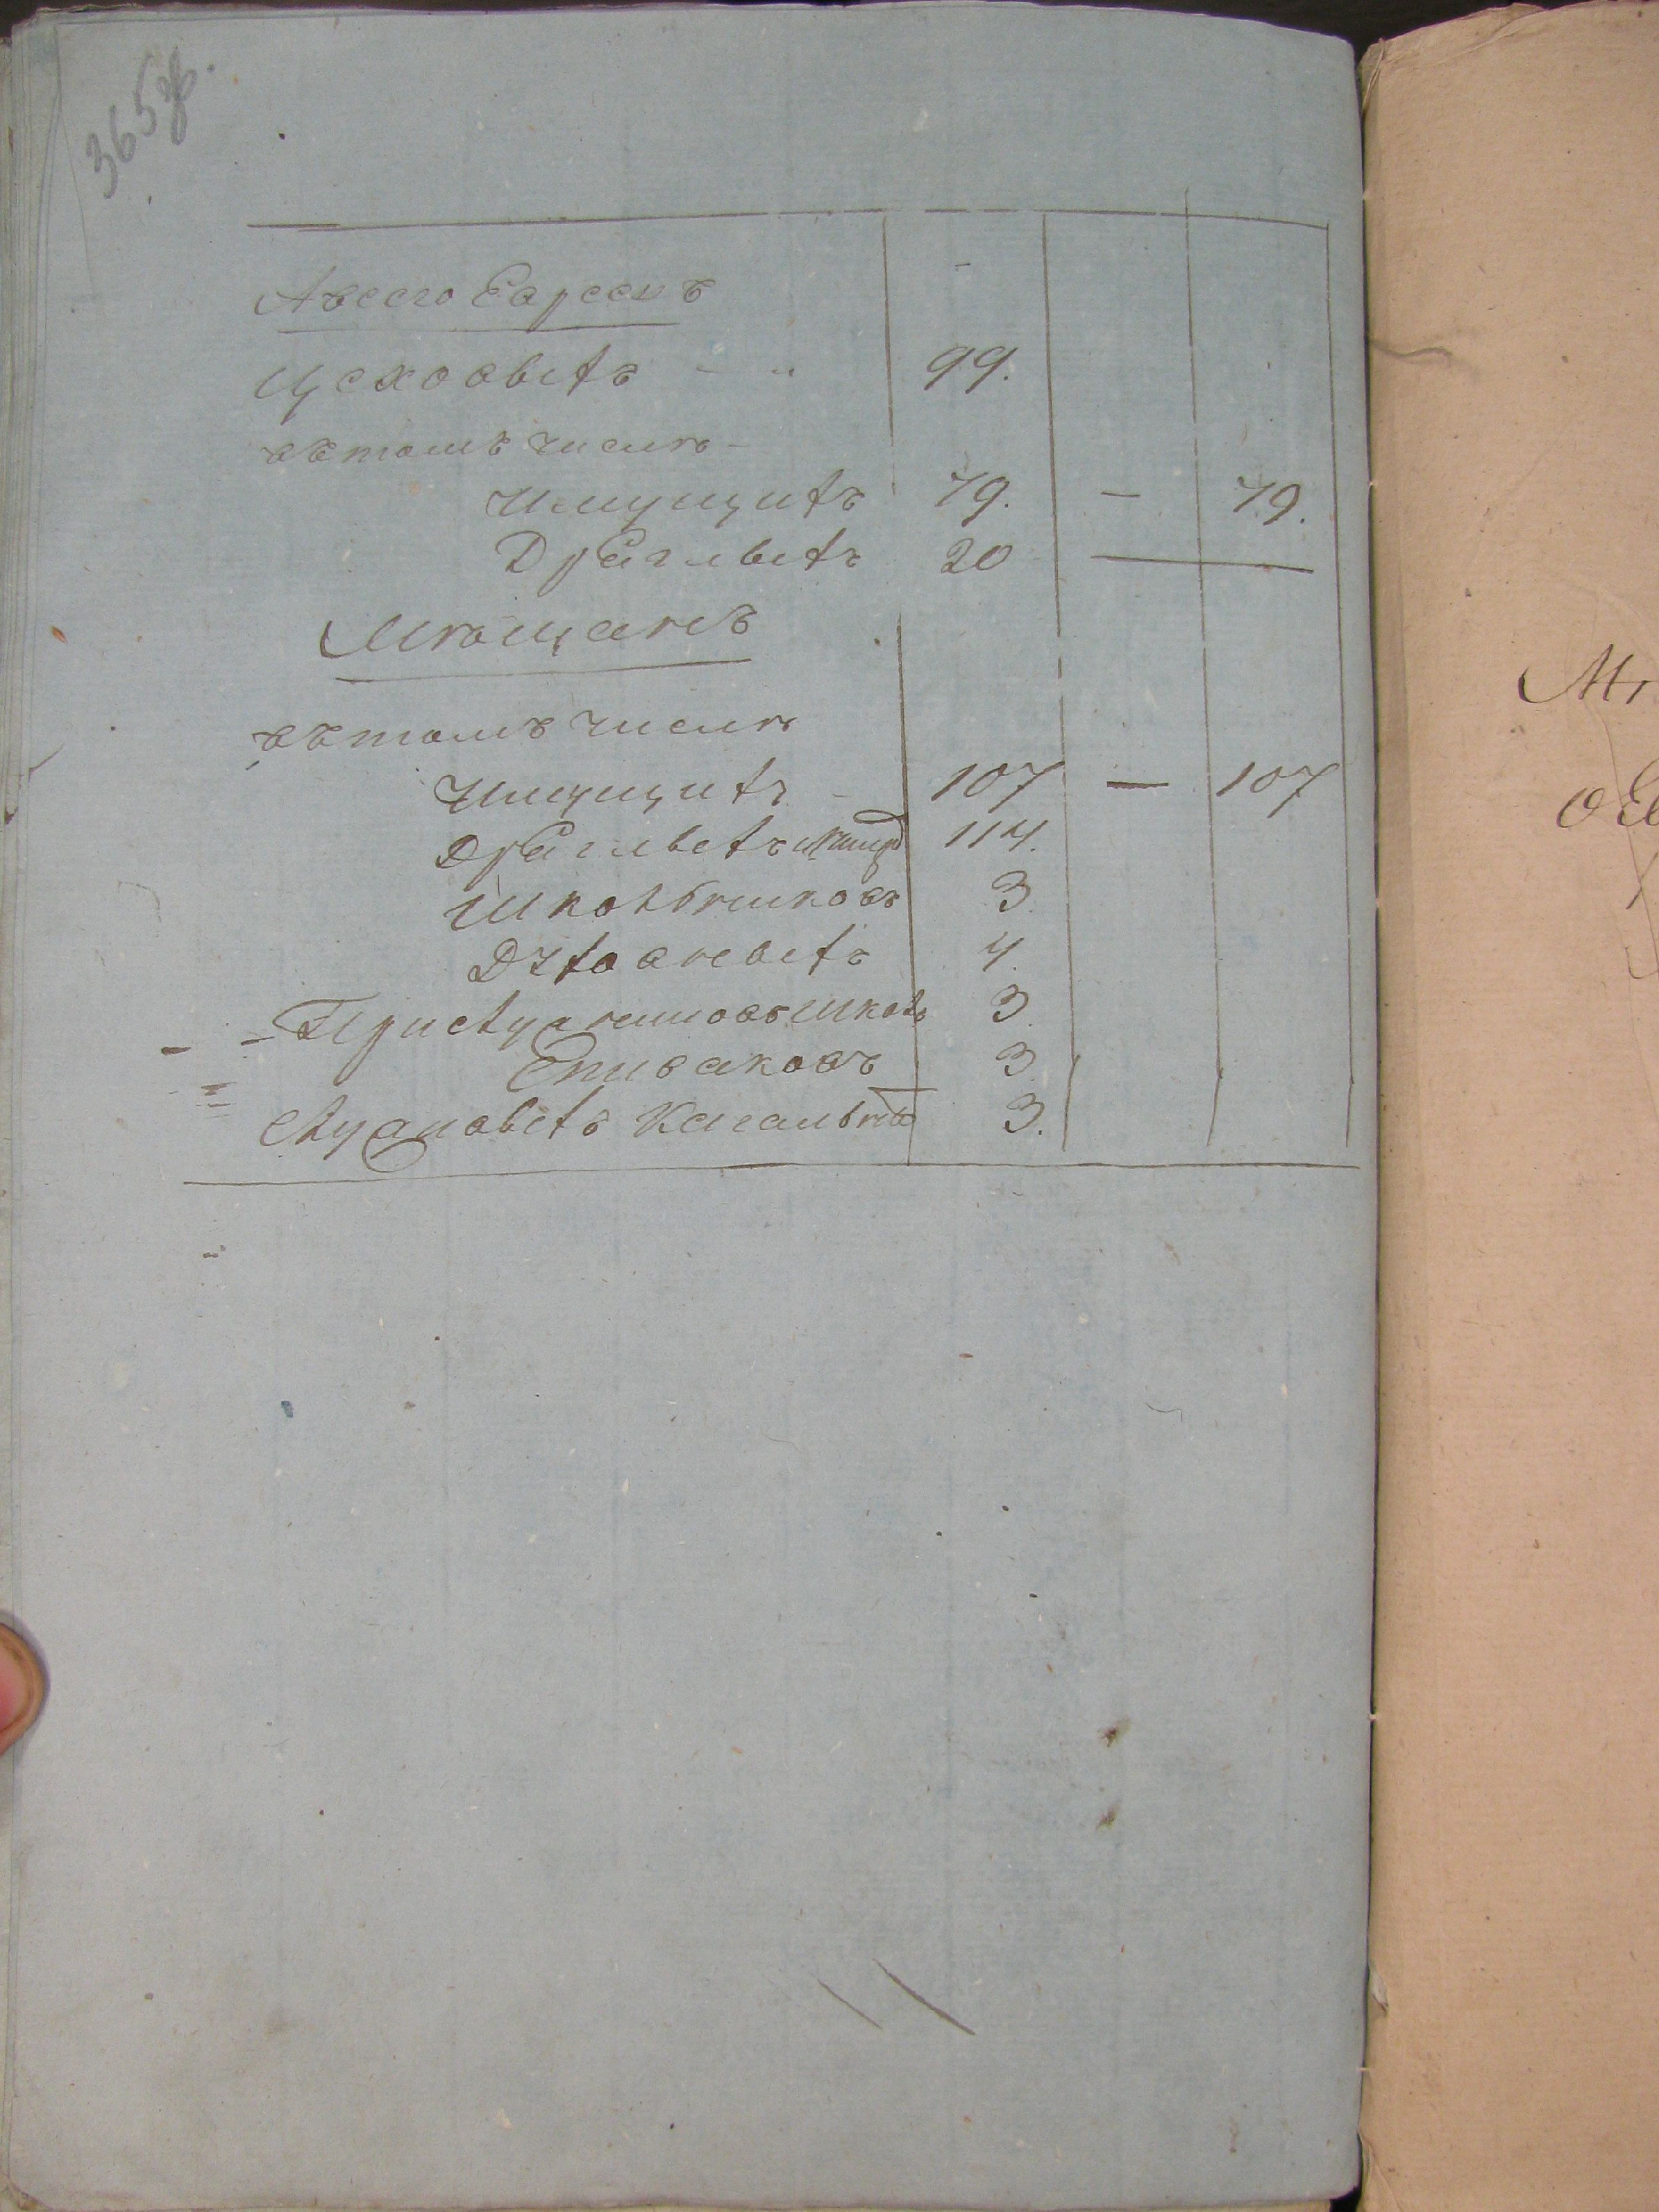 365 об.
Авсего Евреевъ
Цеховыхъ 99.
вътомъ числѣ
Имущихъ 79. — 79.
Дряглыхъ 20 —
Мѣщанъ
вътомъ числѣ
Имущихъ 107 — 107
Дряглыхъ 114.
Школьниковъ 3
Духовныхъ 4.
Прислужниковъ школъ 3.
Спиваковъ 3.
Служовыхъ Кагальныхъ 3.